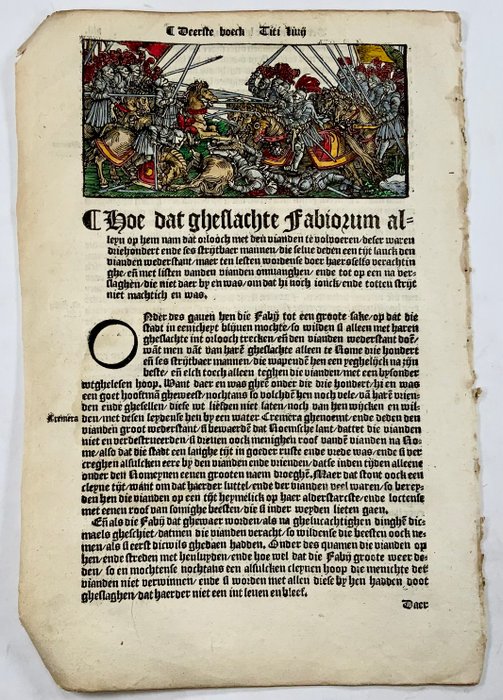 ¶ Deerste boeck Titi Livij
¶ Hoe dat gheslachte Fabiorum al-
leyn op hem nam dat orlooch met den vianden te volvoeren/ deser waren
driehondert ende ses strijtbaer mannen/ die selve deden een tijt lanck den
vianden wederstant/ maer ten lesten wordense doer haerselfs verachtin
ghe/ en̄ met listen vanden vianden omvanghen/ ende tot op een na ver-
slaghen/ die niet daer by en was/ om dat hi noch ionck/ ende totten strijt
niet machtich en was.
ONder des gaven hen die Fabij tot een groote sake/ op dat die
stadt in eenicheyt blijven mochte/ so wilden si alleen met haren
gheslachte int orlooch trecken/ en̄ den vianden wederstant doē
wāt men vāt van harē gheslachte alleen te Rome drie hondert
en̄ ses strijtbaer mannen/ die wapendē hen een yeghelijck na zijn
beste/ en̄ elck toech alleen teghen die vianden/ met een bysonder
wtghelesen hoop. Want daer en was gheē onder die drie hondert/ hi en was
een goet hooftmā gheweest/ nochtans so volchdē hen noch vele/ vā harē vrien
den ende ghesellen/ diese wt liefden niet laten/ noch van hen wijcken en wil
den/ met desen leydense hen by een water Cremera ghenoemt/ ende deden den
Cremera
vianden groot wederstant/ si bewaerdē dat Roemsche lant/ dattet die vianden
niet en verdestrueerden/ si dreven oock menighen roof vandē vianden na Ro-
me/ also dat die stadt een langhe tijt in goeder ruste ende vrede was/ ende si ver
creghen alsulcken eere by den vianden ende vrienden/ datse inden tijden alleene
onder den Romeynen eenen grooten naem droeghē. Maer dat stont oock een
cleyne tijt/ wānt om dat haerder luttel/ ende der vianden veel waren/ so berey-
den hen die vianden op een tijt heymelick op haer alderstarcste/ ende loctense
met eenen roof van somighe beesten/ die si inder weyden lieten gaen.
En̄ als die Fabij dat ghewaer worden/ als na ghelucachtighen dinghē dic-
maels gheschiet/ datmen die vianden veracht/ so wildense die beesten oock ne-
men/ als si eerst dicwils ghedaen hadden. Onder des quamen die vianden op
hen/ ende streden met henluyden/ ende hoe wel dat die Fabij groote weer de-
den/ so en mochtense nochtans een alsulcken cleynen hoop die menichte der
vianden niet verwinnen/ ende si worden met allen diese by hen hadden doot
gheslaghen/ dat haerder niet een int leven en bleef.
Daer